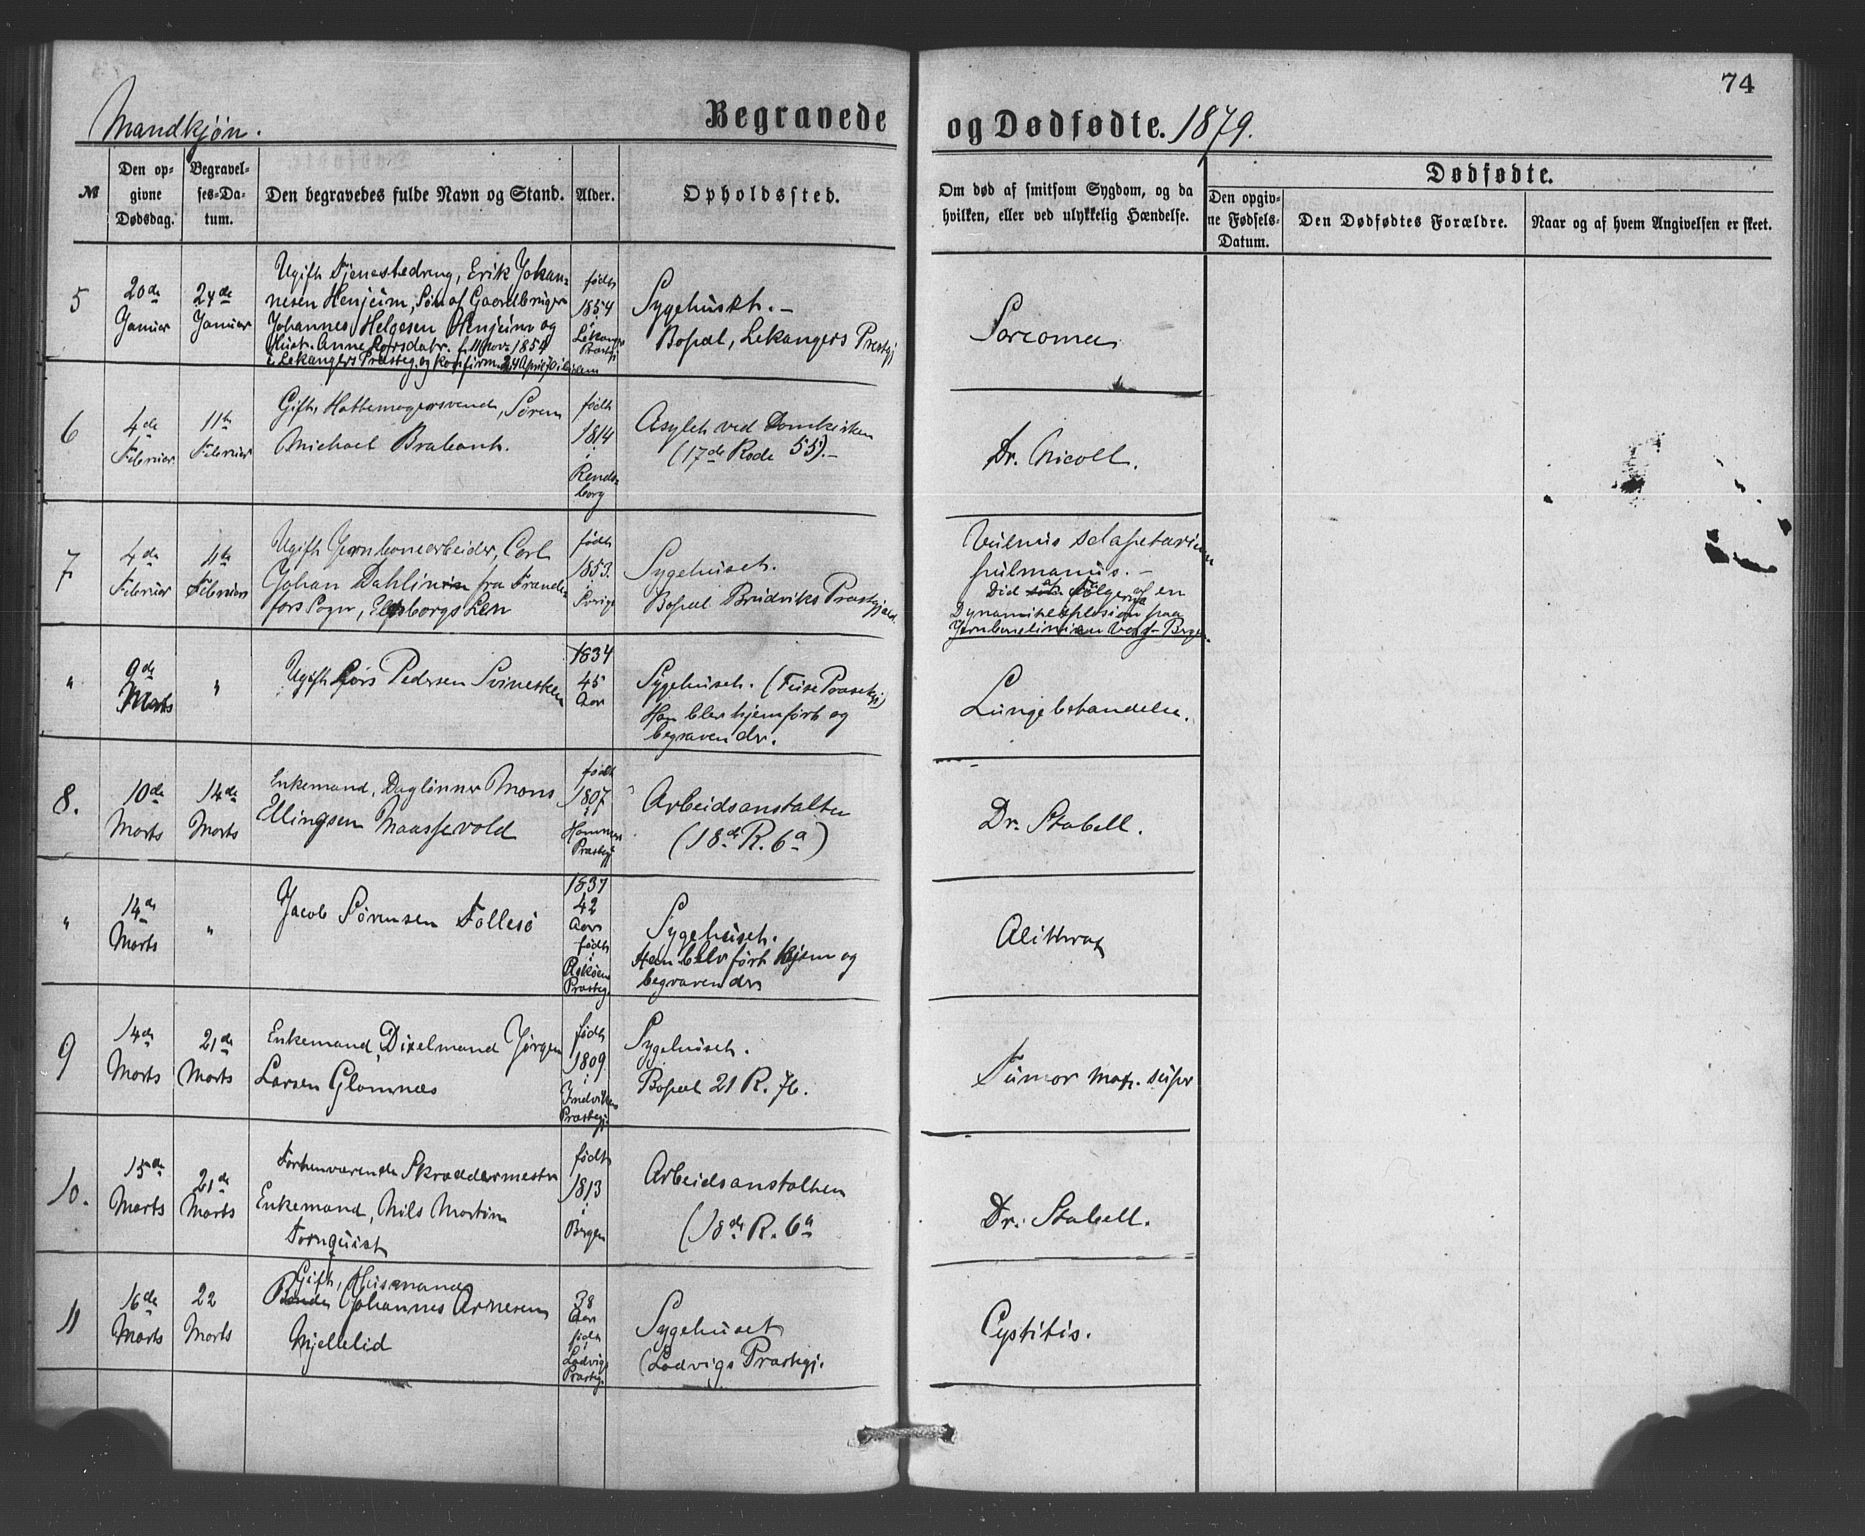 74
Mandkjøn.
Begravede
og Dødfødte. 1879.
№
Den op-
givne
Dødsdag.
Begravel-
ses-Da-
tum.
Den begravedes fulde Navn og Stand.
Alder.
Opholdssted.
Om død af smitsom Sygdom, og da
hvilken, eller ved ulykkelig Hændelse.
Dødfødte.
Den opgiv-
ne Fødsels-
Datum.
Den Dødfødtes Forældre.
Naar og af hvem Angivelsen er skeet.
5
20de
Januar
24de
Januar
Ugift Tjenestedreng, Erik Johan-
nesen Henjum, Søn af Gaardbruger
Johannes Helgesen Henjum og
Hust. Anne Larsdatr. f. 11 Nov. 1854
i Lekangers Præsteg. og konfirm. 24 April
født
1854
i
Lekangr
Præstgj
Sygehuset.-
Bopæl, Lekangers Præstgj
Sarcoma
6
4de
Februar
11te
Februar
Gift, Hattemagersvend, Søren
Michael Brabant.
født
1814
i
Rends-
borg
Asylet ved Domkirken
(17de Rode 55).-
Dr. Nicoll.
7
4de
Februar
11te
Februar
Ugift Jernbanearbeider, Carl
Johan Dahlin fra Trande-
fors Sogn, Elfsborgs Len
født
1853.
i
Sverige
Sygehuset.
Bopæl Brudviks Præstgjæld
Vulnus
pulmanus.-
Død af Følgerne af en
Dynamitexplosion paa
Jernbanelinien Voss-Bergen.
"
9de
Marts
"
Ugift Lars Pedersen Svinesken
1834
45
Aar
Sygehuset. (Fuse Præstegj)
Han blev hjemført og
begraven der.
Lungebetændelse.
8.
10de
Marts
14de
Marts
Enkemand, Daglønner Mons
Ellingsen Maassevold
født
1807
i
Hammers
Præstegj
Arbeidsanstalten
(18de R. 6a)
Dr. Stabell.
"
14de
Marts
"
Jacob Sørensen Follesø
1837
42
Aar
født
i
Askøens
Præsteg.
Sygehuset.
Han blev ført hjem og
begraven der
9
14de
Marts
21de
Marts
Enkemand, Dixelmand Jørgen
Larsen Glomnæs
født
1809
i
Indvikens
Præstegj.
Sygehuset.
Bopæl 21 R. 76.
Tumor max. super
10.
15de
Marts
21de
Marts
Forhenværende Skræddermester
Enkemand, Nils Martin
Tornquist
født
1813
i
Bergen
Arbeidsanstalten
(18de R. 6a
Dr. Stabell.
11
16de
Marts
22
Marts
Gift, Husmand
Bonde Johannes Arnesen
Mjellelid
38
Aar
født
i
Ladvigs
Præstg.
Sygehuset
(Ladvigs Præstegj.
Cystitis.